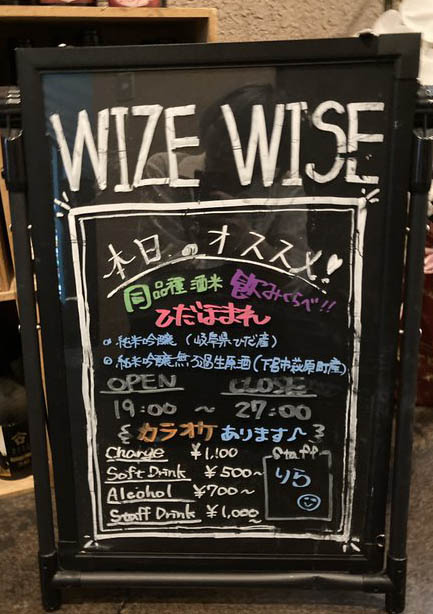 WIZE WISE
本日のオススメ!
同品種酒米 飲みくらべ!!
ひだほまれ
純米吟醸 (岐阜県ひだ産)
純米吟醸無ろ過生原酒(下呂市萩原町産)
OPEN CLOSE
19:00 ～ 27:00
カラオケ あります♪
Charge ¥1,100
Soft Drink ¥500～
Alcohol ¥700～
Staff Drink ¥1,000～
Staff
りら